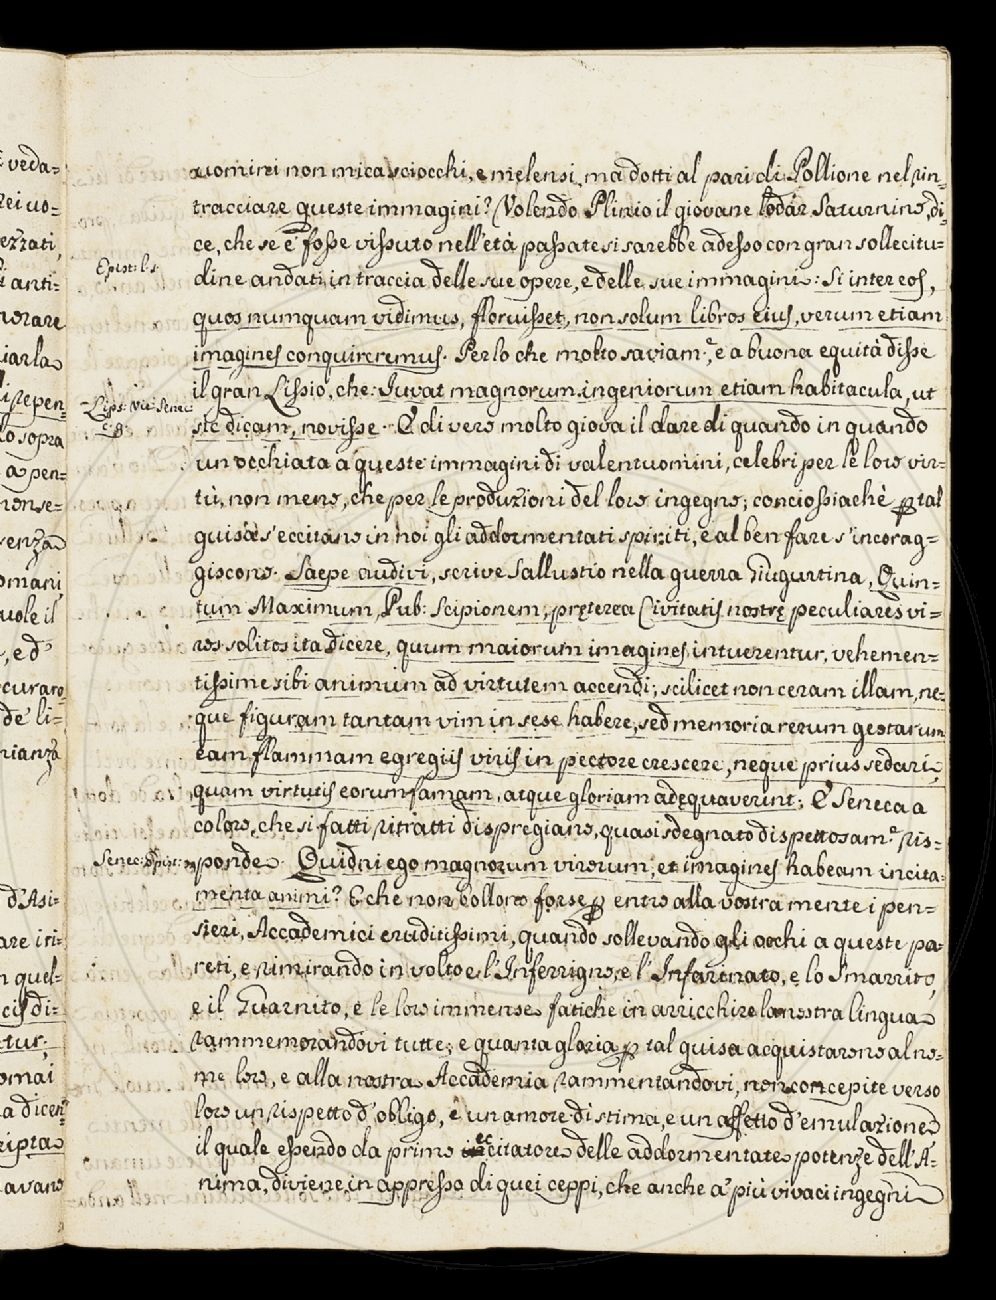 veda=
rei uo=
ezzati,
anti=
norare
iarla
istepen=
lo sopra
a pen=
nense=
senza
omani
uole il
, ed
curaro
de li=
nianza
d'Asi=
are iri=
n quel=
cis di=
tur;
omai
a dicen
ripta
avano
Epist: l. 1.
Lips: Vit: Senec:
c. 8.
Senec: Epist:
uomini non mica sciocchi, e melensi, ma dotti al pari di Pollione nel rin=
tracciare queste immagini? Volendo Plinio il giovane lodar Saturnino, di=
ce, che se e' fosse vissuto nell'età passate si sarebbe adesso con gran sollecitu=
dine andati in traccia delle sue opere, e delle sue immagini: Si inter eos,
quos numquam vidimus, floruisset, non solum libros eius, verum etiam
imagines conquireremus. Perlo che molto saviam.e, e a buona equità disse
il gran Lissio, che: Iuvat magnorum ingeniorum etiam habitacula, ut
sic dicam, novisse. E di vero molto giova il dare di quando in quando
un occhiata a queste immagini di valentuomini, celebri per le loro vir=
tù, non meno, che per le produzioni del loro ingegno; conciossiachè p tal
guisa s'eccitano in noi gli addormentati spiriti, e al ben fare s'incorag=
giscono. Saepe audivi, scrive Sallustio nella guerra Giugurtina, Quin=
tum Maximum, Pub: Scipionem, pręterea Civitatis nostrę peculiares vi=
ros solitos ita dicere, quum maiorum imagines intuerentur, vehemen=
tissime sibi animum ad virtutem accendi; scilicet non ceram illam, ne=
que figuram tantam vim in sese habere, sed memoria rerum gestarum
eam flammam egregiis viris in pectore crescere, neque prius sedari,
quam virtutis eorum famam, atque gloriam adequaverint; E Seneca a
coloro, che si fatti ritratti dispregiano, quasi sdegnato dispettosam.e ris=
ponde. Quidni ego magnorum virorum, et imagines habeam incita=
menta animi? E che non bollono forse p entro alla vostra mente i pen=
sieri, Accademici eruditissimi, quando sollevando gli occhi a queste pa=
reti, e rimirando in volto e l'Inferrigno, e l'Infarinato, e lo Smarrito,
e il Guarnito, e le loro immense fatiche in arricchire la nostra lingua
rammemorandovi tutte; e quanta gloria p tal guisa acquistarono al no=
me loro, e alla nostra Accademia rammentandovi, non concepite verso
loro un rispetto d'obligo, e un amore di stima, e un affetto d'emulazione
il quale essendo da primo eccitatore delle addormentate potenze dell'A=
nima, diviene in appresso di quei ceppi, che anche a' più vivaci ingegni